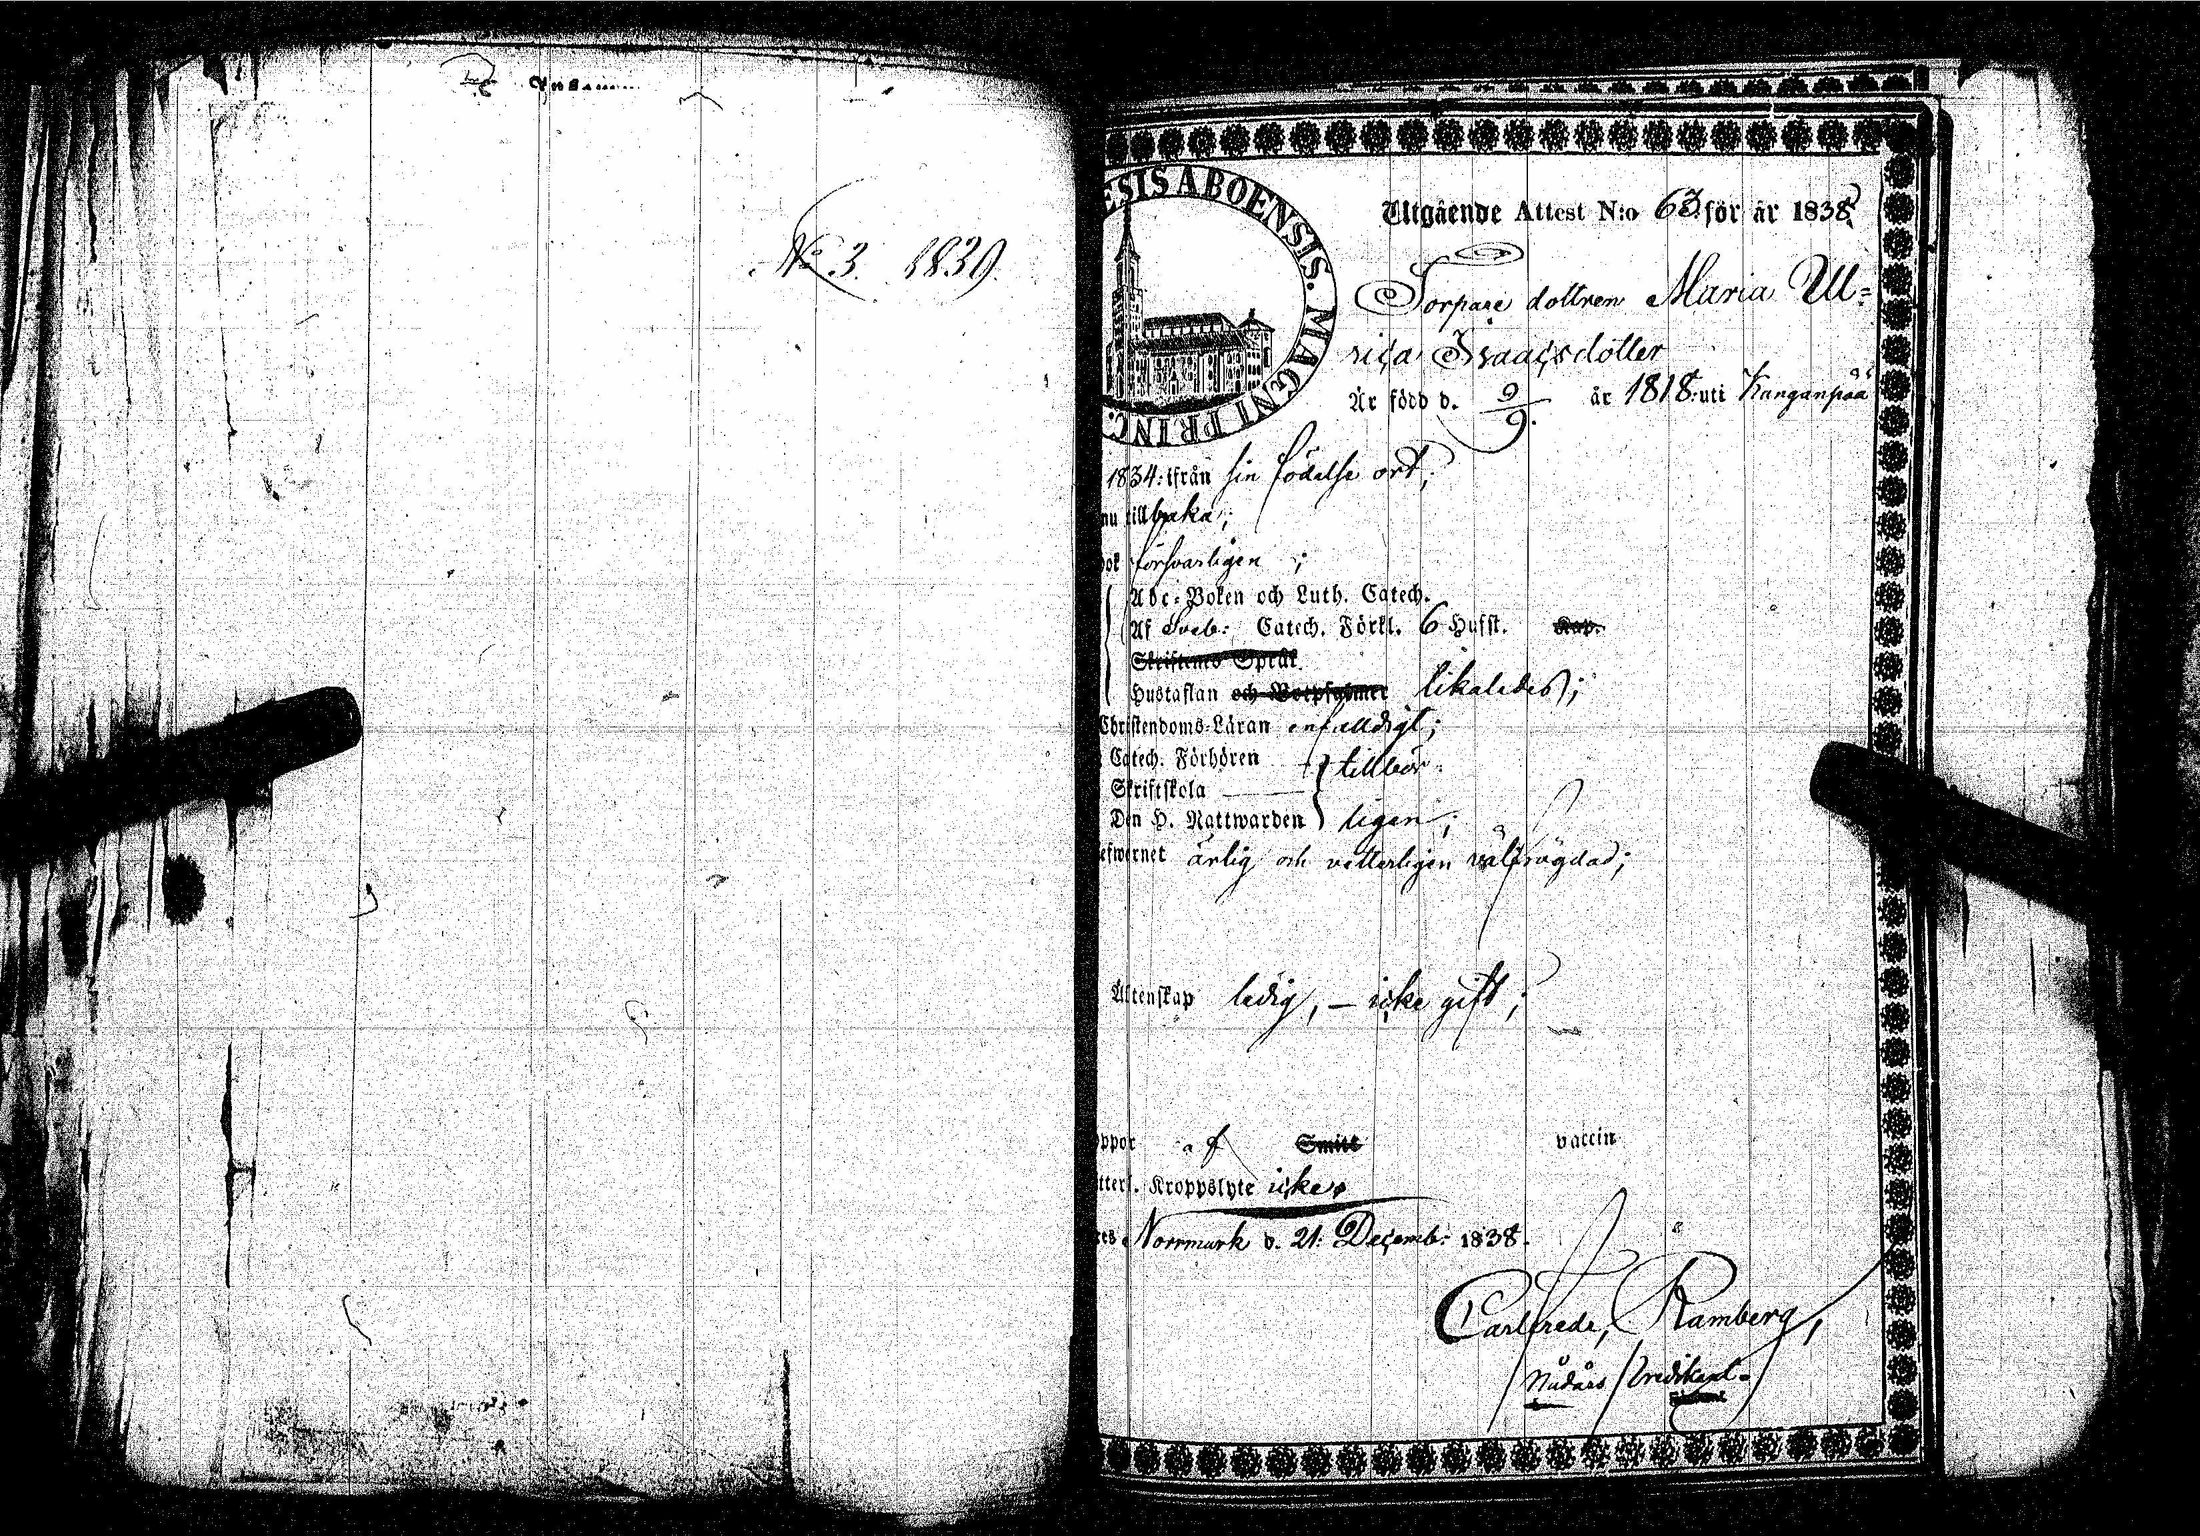 No 3. 1839.
ESIS ABOENSIS. MAGNI PRINC.
Utgående Attest N:o 63 för år 1838
Torpare dottren Maria Ul=
rica Isaacsdotter
Är född d. 9/9. år 1818: uti Kanganpää
1834: ifrån sin födelse ort;
nu tillbaka;
bok försvarligen ;
Abc-Boken och Luth. Catech.
Af Sveb: Catech. Förkl. 6 Hufst. Kap.
Skriftenes Språk
Hustaflan och Botpsalmer likaledes;
Christendoms-Läran enfalldigt;
Catech. Förhören } tillbör-
Skriftskola
Den H. Nattwarden } ligen;
efwernet ärlig och vetterligen välfrägdad;
Äktenskap ledig, – icke gift;
oppor af Smitt vaccin
etterl. Kroppslyte icke.
Norrmark d. 21: Decemb: 1838.
Carl Fredr, Ramberg,
Nådårs Predikant.